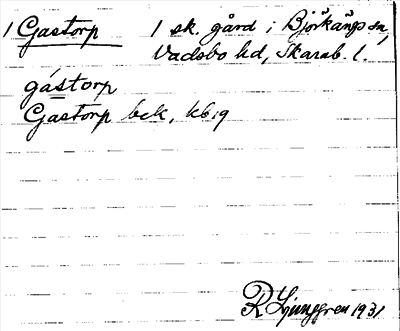 1 Gastorp 1 sk. gård i Björkängs sn,
Vadsbo hd, Skarab. l.
gástòrp
Gastorp bek, kb 19
R Ljunggren 1931